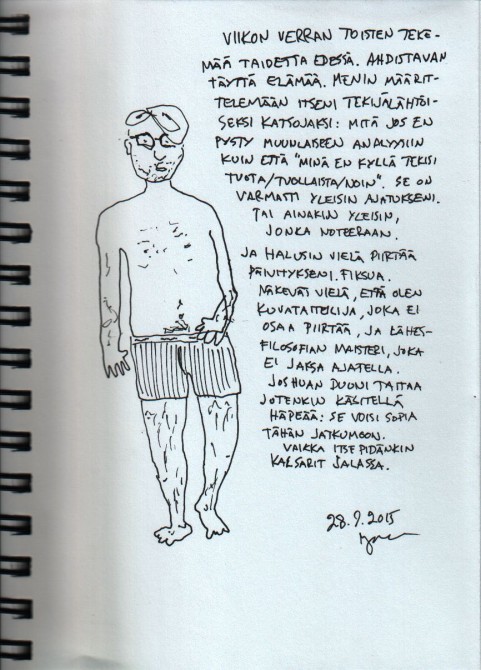 VIIKON VERRAN TOISTEN TEKE-
MÄÄ TAIDETTA EDESSÄ. AHDISTAVAN
TÄYTTÄ ELÄMÄÄ. MENIN MÄÄRIT-
TELEMÄÄN ITSENI TEKIJÄLÄHTÖI-
SEKSI KATSOJAKSI: MITÄ JOS EN
PYSTY MUUNLAISEEN ANALYYSIIN
KUIN ETTÄ "MINÄ EN KYLLÄ TEKISI
TUOTA/TUOLLAISTA/NOIN". SE ON
VARMASTI YLEISIN AJATUKSENI.
TAI AINAKIN YLEISIN,
JONKA NOTEERAAN.
JA HALUSIN VIELÄ PIIRTÄÄ
PÄIVITYKSENI. FIKSUA.
NÄKEVÄT VIELÄ, ETTÄ OLEN
KUVATAITEILIJA, JOKA EI
OSAA PIIRTÄÄ, JA LÄHES-
FILOSOFIAN MAISTERI, JOKA
EI JAKSA AJATELLA.
JOSHUAN DUONI TAITAA
JOTENKIN KÄSITELLÄ
HÄPEÄÄ: SE VOISI SOPIA
TÄHÄN JATKUMOON.
VAIKKA ITSE PIDÄNKIN
KALSARIT JALASSA.
28.9.2015